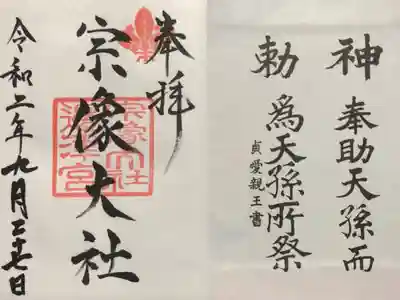 神 奉助天孫而
勅 爲天孫所祭
貞愛親王書
奉拝
宗像大社
宗像大社
邊津宮
令和二年九月二十七日